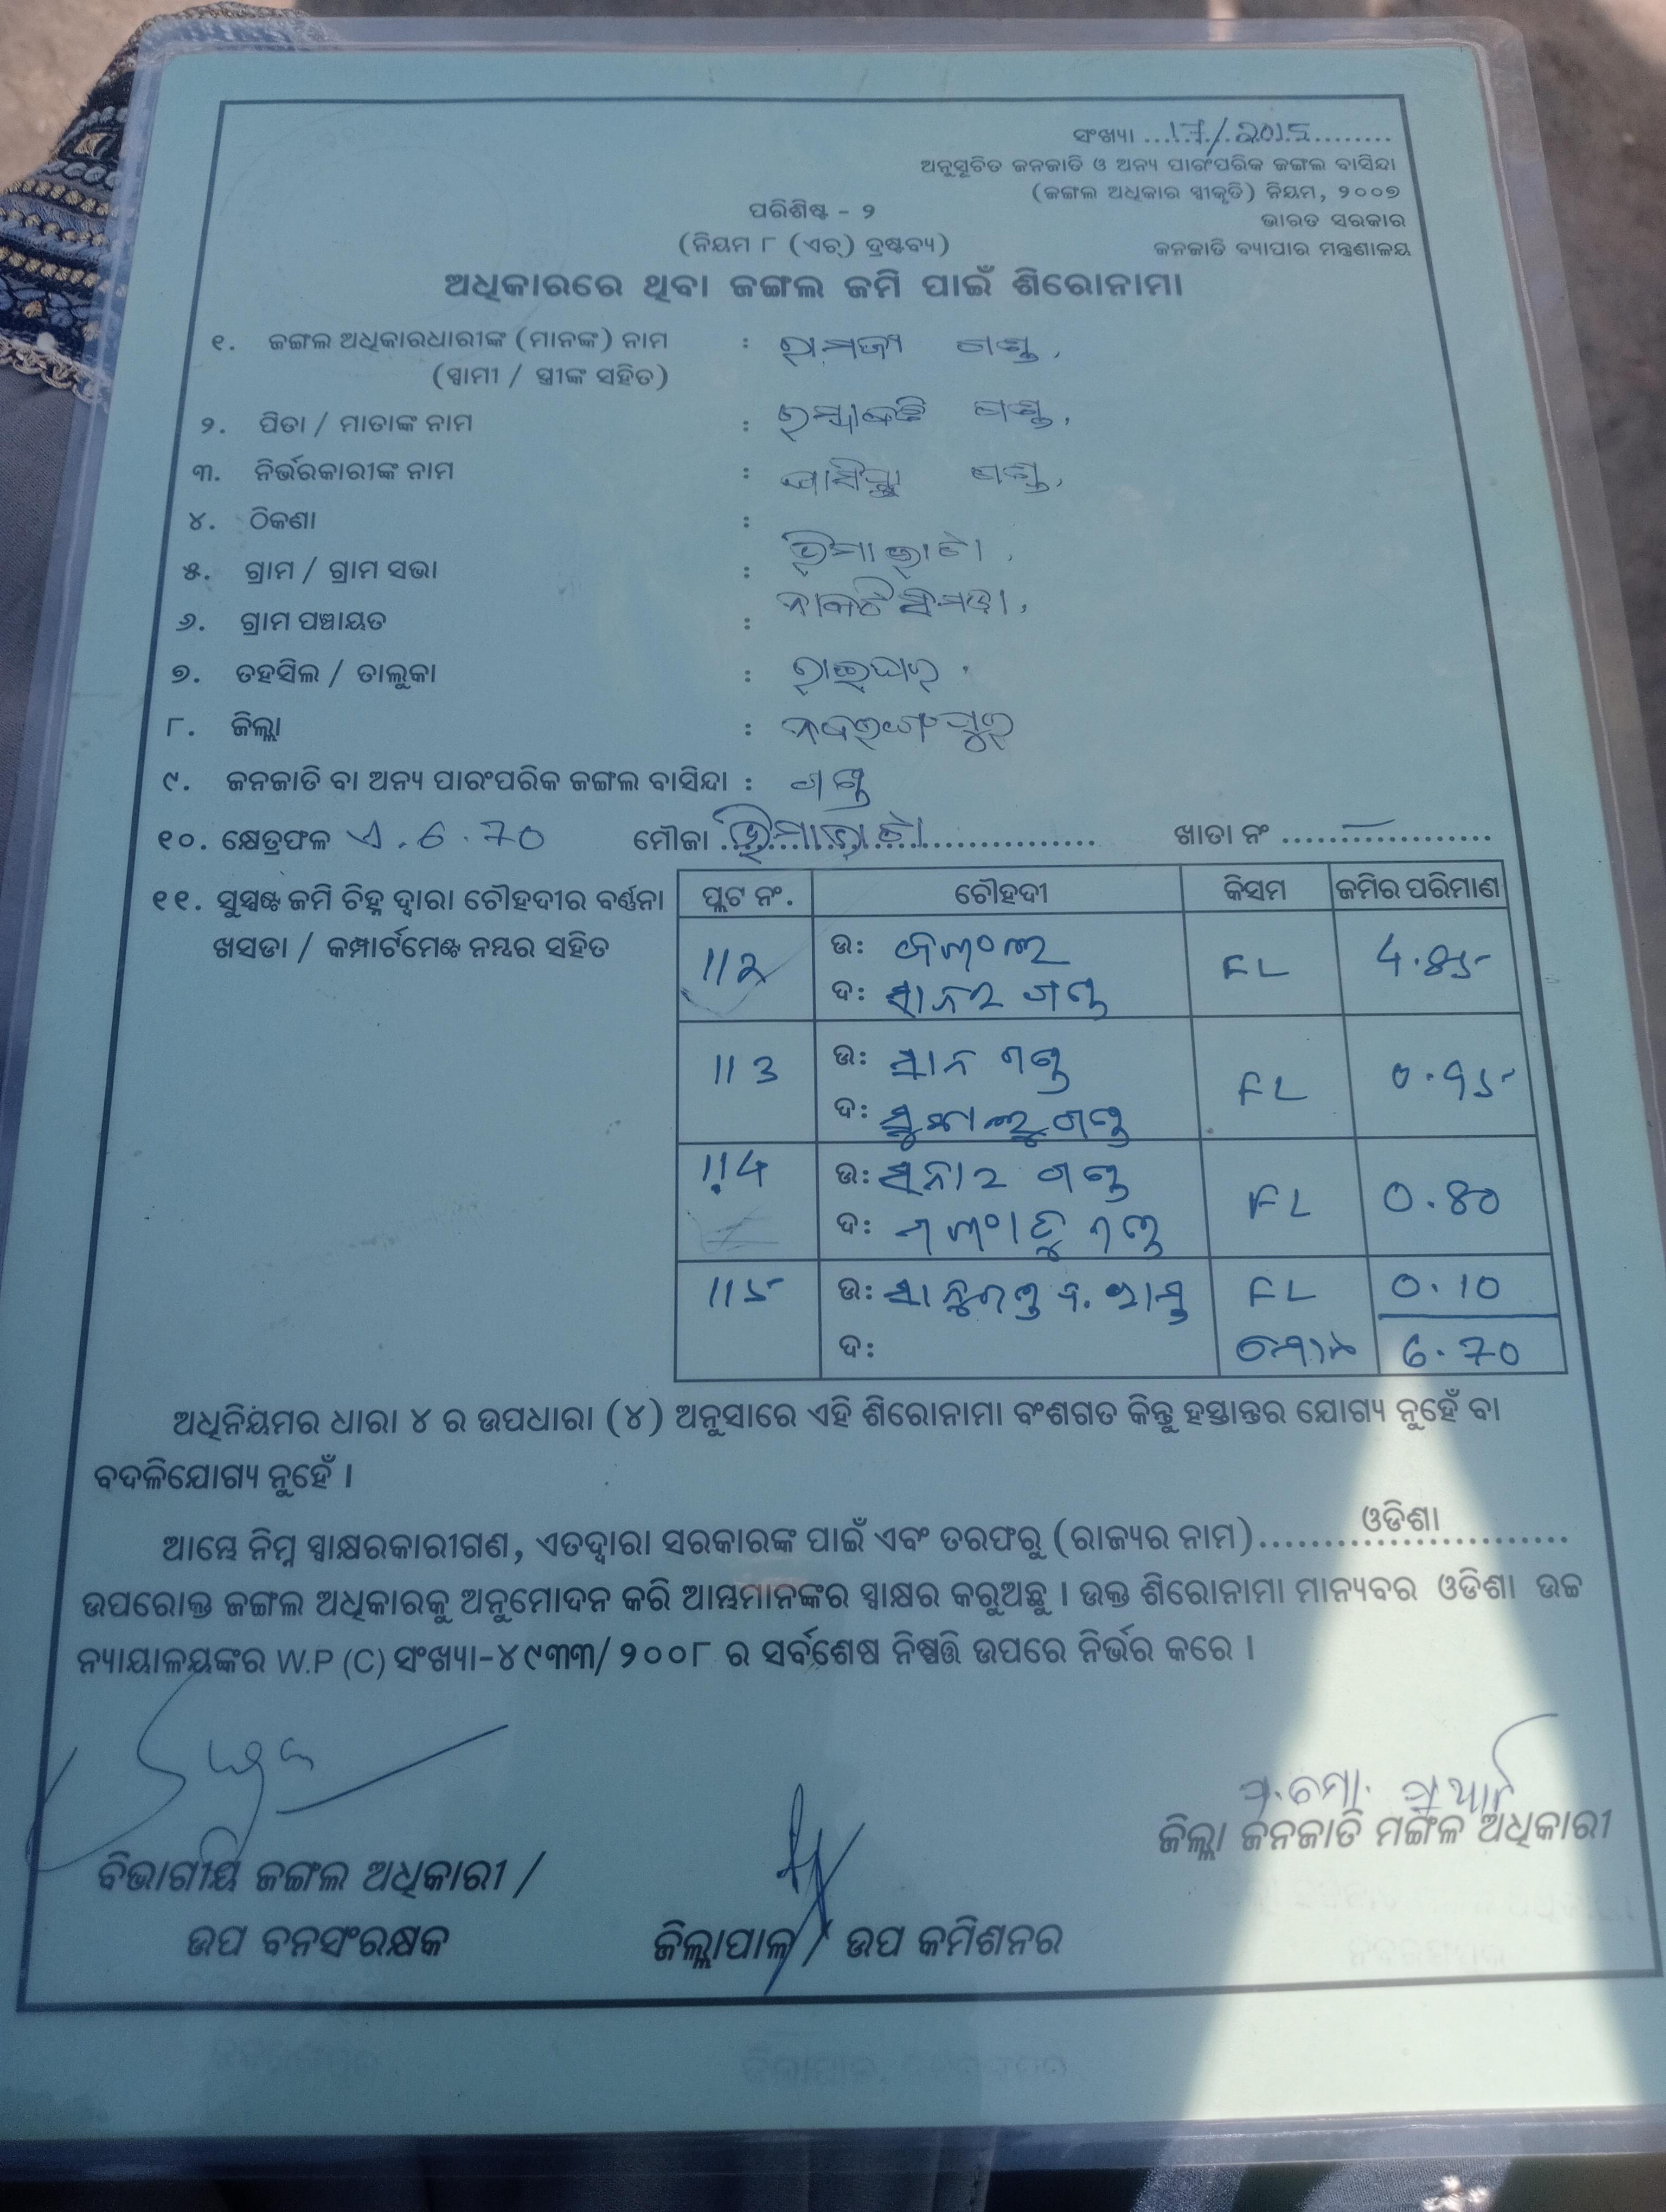 ସଂଖ୍ୟା ...17/2015..........
ଅନୁସୂଚିତ ଜନଜାତି ଓ ଅନ୍ୟ ପାରଂପରିକ ଜଙ୍ଗଲ ବାସିନ୍ଦା
(ଜଙ୍ଗଲ ଅଧିକାର ସ୍ୱୀକୃତି) ନିୟମ, ୨୦୦୭
ଭାରତ ସରକାର
ଜନଜାତି ବ୍ୟାପାର ମନ୍ତ୍ରଣାଳୟ
ପରିଶିଷ୍ଟ - ୨
(ନିୟମ ୮ (ଏଚ୍) ଦ୍ରଷ୍ଟବ୍ୟ)
ଅଧିକାରରେ ଥିବା ଜଙ୍ଗଲ ଜମି ପାଇଁ ଶିରୋନାମା
୧. ଜଙ୍ଗଲ ଅଧିକାରଧାରୀଙ୍କ (ମାନଙ୍କ) ନାମ : ଗଣ୍ଡ,
(ସ୍ୱାମୀ / ସ୍ତ୍ରୀଙ୍କ ସହିତ)
୨. ପିତା / ମାତାଙ୍କ ନାମ : ଗଣ୍ଡ,
୩. ନିର୍ଭରକାରୀଙ୍କ ନାମ : ଗଣ୍ଡ,
୪. ଠିକଣା :
୫. ଗ୍ରାମ / ଗ୍ରାମ ସଭା :
୬. ଗ୍ରାମ ପଞ୍ଚାୟତ :
୭. ତହସିଲ / ତାଲୁକା : ରାଇଘର
୮. ଜିଲ୍ଲା : ନବରଙ୍ଗପୁର
୯. ଜନଜାତି ବା ଅନ୍ୟ ପାରଂପରିକ ଜଙ୍ଗଲ ବାସିନ୍ଦା : ଗଣ୍ଡ
୧୦. କ୍ଷେତ୍ରଫଳ ଏ.6.70 ମୌଜା ............ ଖାତା ନଂ ............
୧୧. ସୁସ୍ପଷ୍ଟ ଜମି ଚିହ୍ନ ଦ୍ୱାରା ଚୌହଦୀର ବର୍ଣ୍ଣନା
ଖସଡା / କମ୍ପାର୍ଟମେଣ୍ଟ ନମ୍ବର ସହିତ
ପ୍ଲଟ ନଂ. ଚୌହଦୀ କିସମ ଜମିର ପରିମାଣ
112 ଉ: ଜଙ୍ଗଲ FL 4.85
ଦ: ଗଣ୍ଡ
113 ଉ: ଗଣ୍ଡ FL 0.95
ଦ: ଗଣ୍ଡ
114 ଉ: ଗଣ୍ଡ FL 0.80
ଦ: ଗଣ୍ଡ
115 ଉ: FL 0.10
ଦ: ମୋଟ 6.70
ଅଧିନିୟମର ଧାରା ୪ ର ଉପଧାରା (୪) ଅନୁସାରେ ଏହି ଶିରୋନାମା ବଂଶଗତ କିନ୍ତୁ ହସ୍ତାନ୍ତର ଯୋଗ୍ୟ ନୁହେଁ ବା
ବଦଳିଯୋଗ୍ୟ ନୁହେଁ ।
ଆମ୍ଭେ ନିମ୍ନ ସ୍ୱାକ୍ଷରକାରୀଗଣ, ଏତଦ୍ୱାରା ସରକାରଙ୍କ ପାଇଁ ଏବଂ ତରଫରୁ (ରାଜ୍ୟର ନାମ)........ଓଡିଶା..........
ଉପରୋକ୍ତ ଜଙ୍ଗଲ ଅଧିକାରକୁ ଅନୁମୋଦନ କରି ଆମ୍ଭମାନଙ୍କର ସ୍ୱାକ୍ଷର କରୁଅଛୁ । ଉକ୍ତ ଶିରୋନାମା ମାନ୍ୟବର ଓଡିଶା ଉଚ୍ଚ
ନ୍ୟାୟାଳୟଙ୍କର W.P (C) ସଂଖ୍ୟା-୪୯୩୩/୨୦୦୮ ର ସର୍ବଶେଷ ନିଷ୍ପତ୍ତି ଉପରେ ନିର୍ଭର କରେ ।
ଜିଲ୍ଲା ଜନଜାତି ମଙ୍ଗଳ ଅଧିକାରୀ
ବିଭାଗୀୟ ଜଙ୍ଗଲ ଅଧିକାରୀ /
ଉପ ବନସଂରକ୍ଷକ
ଜିଲ୍ଲାପାଳ / ଉପ କମିଶନର